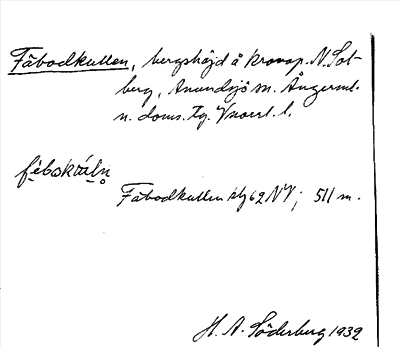 Fäbodkullen, bergshöjd å kronop. N. Sol-
berg, Anundsjö sn. Ångerml.
n. doms. tg. Vnorrl. l.
fébokväln
Fäbodkullen kbl 62 NV; 511 m.
H. A. Söderberg 1932